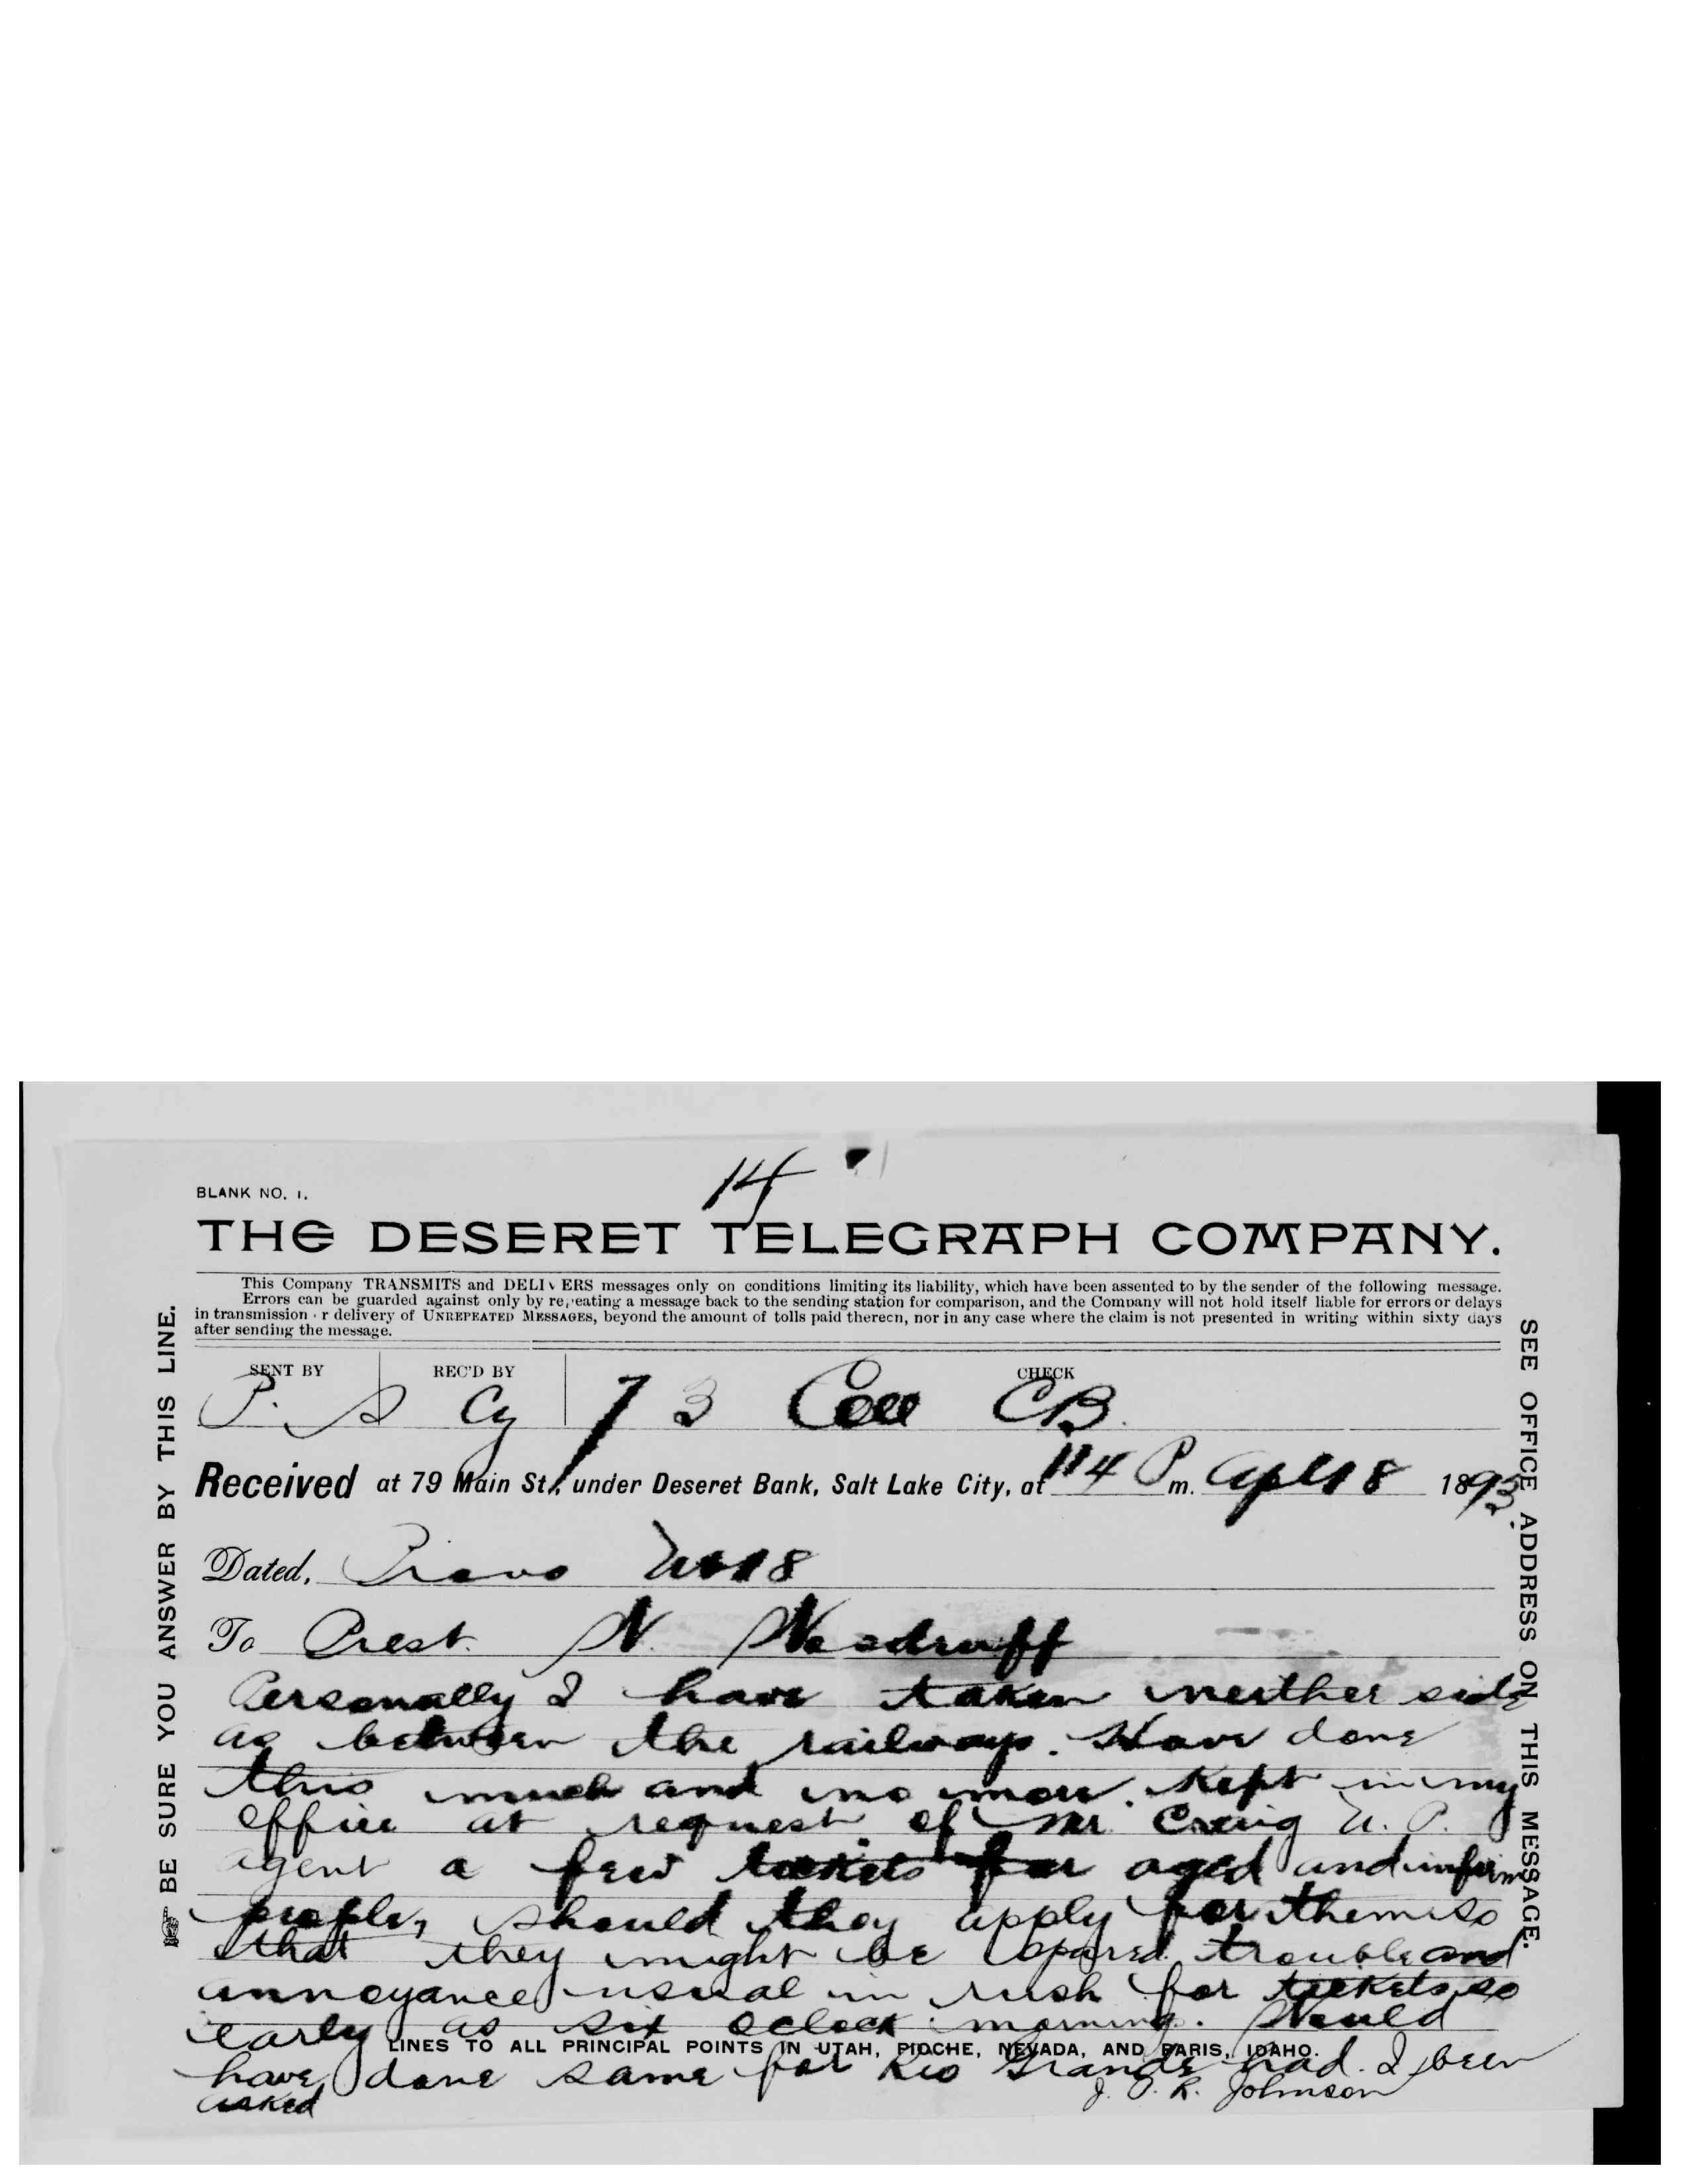 14
BLANK NO. 1.
THE DESERET TELEGRAPH COMPANY.
This Company TRANSMITS and DELIVERS messages only on conditions limiting its liability, which have been assented to by the sender of the following message.
Errors can be guarded against only by repeating a message back to the sending station for comparison, and the Company will not hold itself liable for errors or delays
in transmission or delivery of UNREPEATED MESSAGES, beyond the amount of tolls paid thereon, nor in any case where the claim is not presented in writing within sixty days
after sending the message.
SENT BY REC'D BY CHECK
P. S Cy 73 CB.
Received at 79 Main St., under Deseret Bank, Salt Lake City, at 114 P m. Apl 18 1893
Dated, Provo 18
To Prest. W. Woodruff
Personally I have taken neither side
as between the railways. Have done
this much and no more. Kept in my
office at request of Mr. Craig U. P.
agent a few tickets for aged and infirm
people, should they apply for them so
that they might be spared trouble and
annoyance usual in rush for tickets so
early as six oclock morning. Would
LINES TO ALL PRINCIPAL POINTS IN UTAH, PIOCHE, NEVADA, AND PARIS, IDAHO.
have done same for Rio Grande had I been
asked
J. P. R. Johnson
BE SURE YOU ANSWER BY THIS LINE.
SEE OFFICE ADDRESS ON THIS MESSAGE.